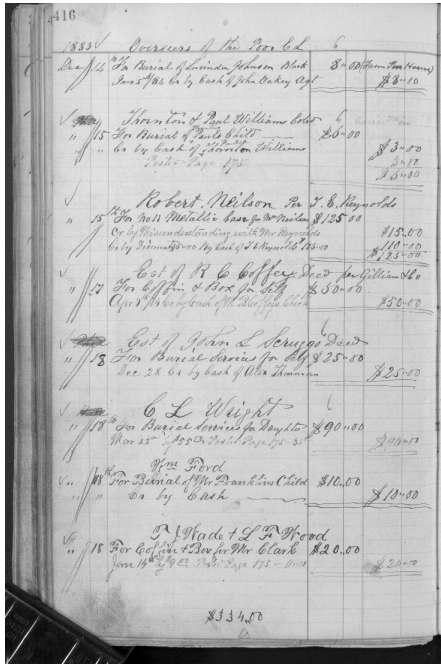 416
1883 Overseers of the Poor
Dec 14 For Burial of Lucinda Johnson Black 8.00 (From Poor House)
Jan 5th 84 Cr by Cash of John Oakey Agt $8.00
Thornton & Paul Williams Cold
" 15 For Burial of Pauls Child $6.00
" " Cr by Cash of Thornton Williams $3.00
Posted Page 175
$6.00
Robert. Neilson Per T. E. Reynolds
" 15th For No 11 Metallic Case for Mr Neilson $125.00
Cr by Misunderstanding with Mr Reynolds $15.00
110.00
$125.00
Est of R C Coffee Decd per Gilliam & Co
" 17 For Coffin & Box for Self $50.00
Apr $50.00
Est of John L Scruggs Decd
" 18 For Burial Services for Self $25.00
Dec 22 Cr by Cash of Alex $25.00
C L Wright
" 18th For Burial Services for Daughter $90.00
Mar 25 Page 175 $90.00
Wm Ford
" 18th For Burial of Mr Franklins Child $10.00
" " Cr by Cash $10.00
T J Wade & L F Wood
" 18 For Coffin & Box for Mr Clark $20.00
Jan 14 Page 175 $20.00
$334.00